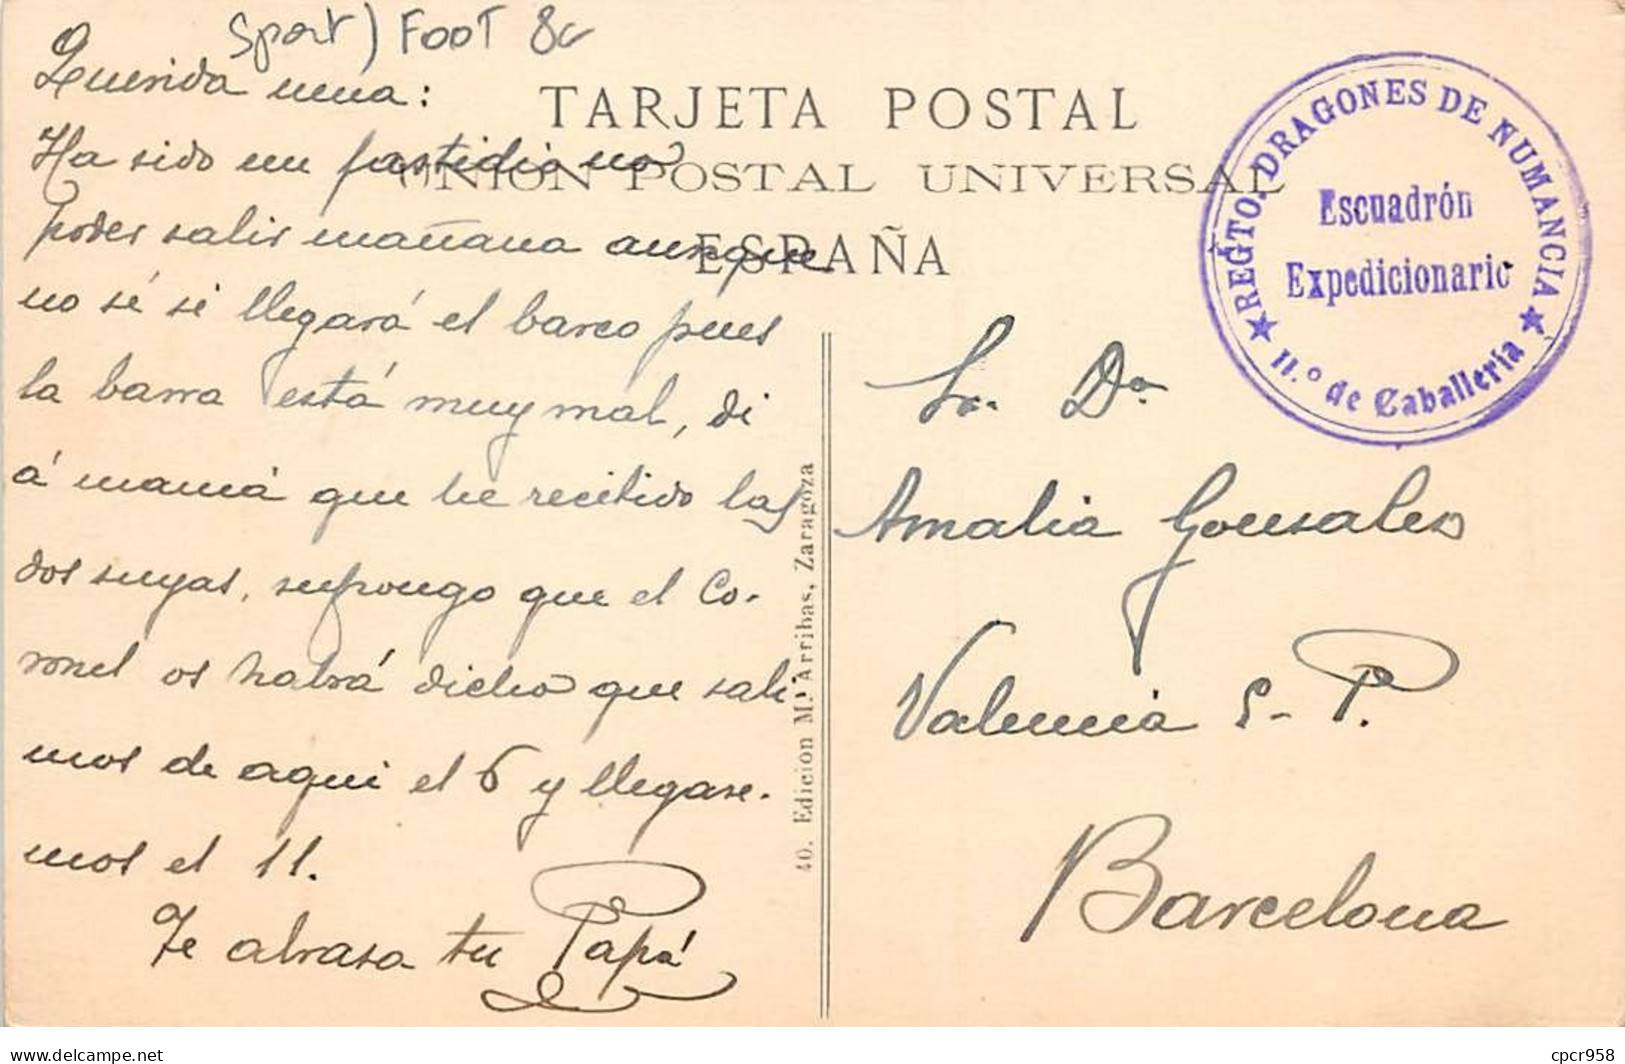 Sport) FOOT 8c
Querida nena:
Ha sido un fastidio no
poder salir mañana aunque
no sé si llegará el barco pues
la barra está muy mal, di
á mamá que he recibido las
dos suyas, supongo que el Co-
ronel os habrá dicho que sali-
mos de aqui el 6 y llegare-
mos el 11.
Te abrasa tu Papá
TARJETA POSTAL
UNION POSTAL UNIVERSAL
ESPAÑA
REGTO. DRAGONES DE NUMANCIA
Escuadrón
Expedicionario
★ 11.º de Caballería ★
40. Edicion M.ª Arribas, Zaragoza
Sr. Dª
Amalia Gonsales
Valencia
Barcelona
cpcr958